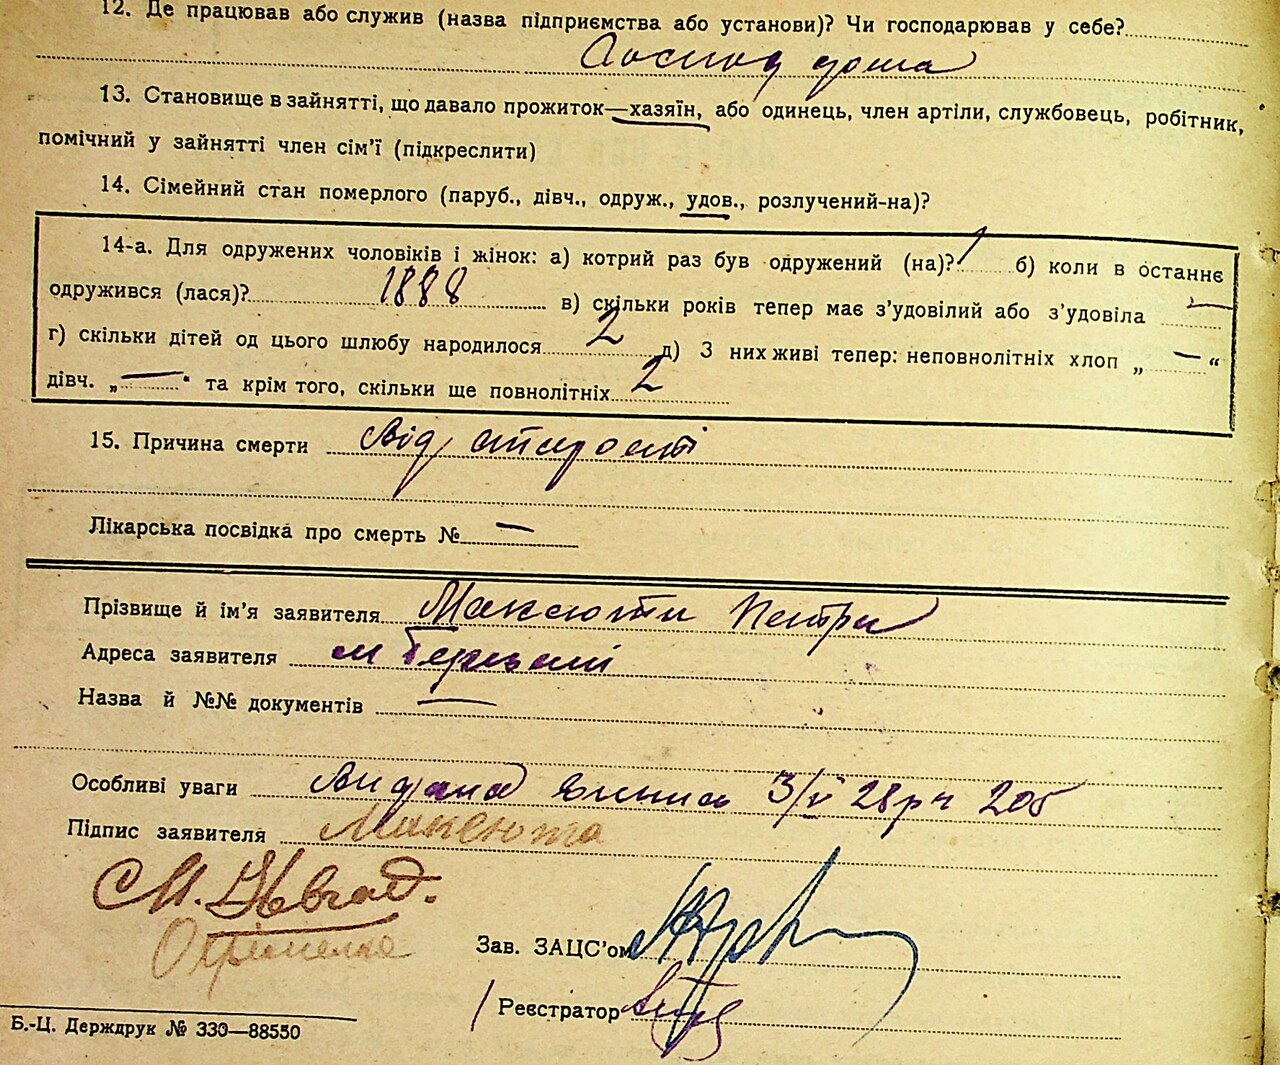 12. Де працював або служив (назва підприємства або установи)? Чи господарював у себе?
Господ дома
13. Становище в зайнятті, що давало прожиток—хазяїн, або одинець, член артіли, службовець, робітник,
помічний у зайнятті член сім'ї (підкреслити)
14. Сімейний стан померлого (паруб., дівч., одруж., удов., розлучений-на)?
14-а. Для одружених чоловіків і жінок: а) котрий раз був одружений (на)? 1 б) коли в останнє
одружився (лася)? 1888 в) скільки років тепер має з'удовілий або з'удовіла —
г) скільки дітей од цього шлюбу народилося 2 д) З них живі тепер: неповнолітніх хлоп „ — “
дівч. „ — “ та крім того, скільки ще повнолітніх 2
15. Причина смерти Від старості
Лікарська посвідка про смерть № —
Прізвище й ім'я заявителя Максюти Петра
Адреса заявителя м
Назва й №№ документів —
Особливі уваги Видана випись 3/V 28 р ч 206
Підпис заявителя Максюта
Зав. ЗАЦС'ом
Реєстратор
Б.-Ц. Держдрук № 330—88550